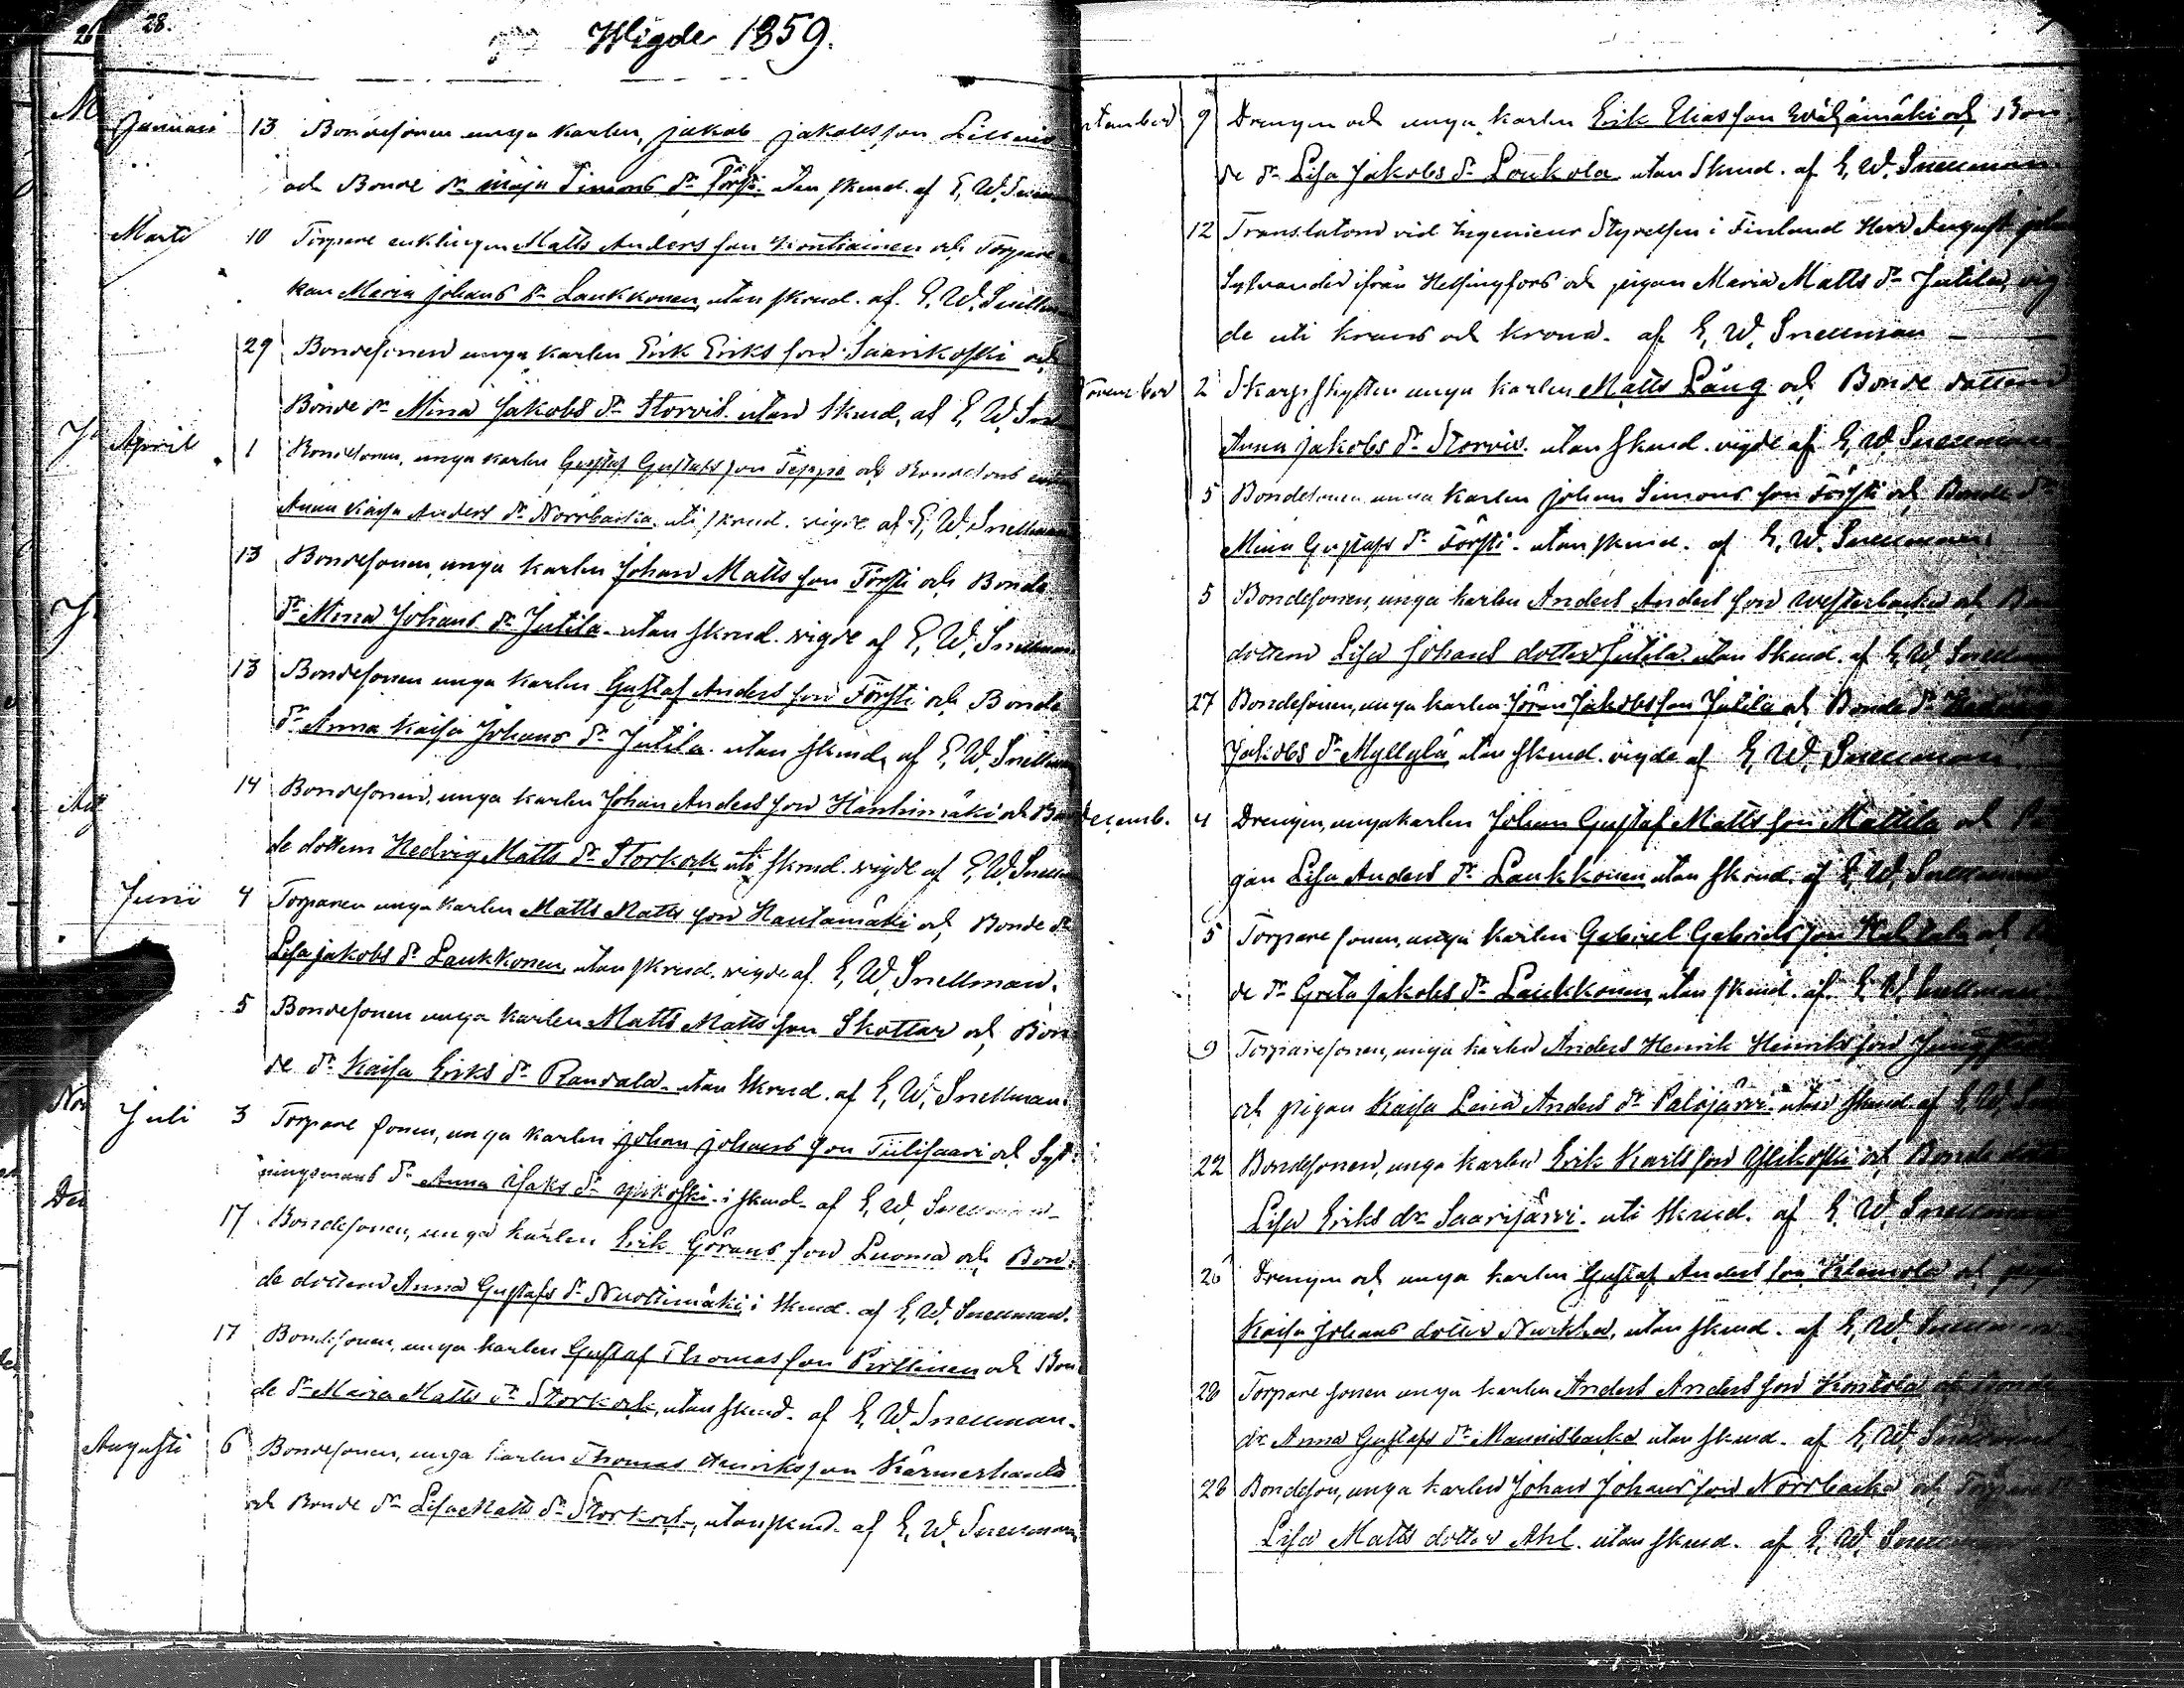 28.
Wigde 1859.
Januari 13 Bondesonen unga karlen, Jakob Jakobsson Lillvis
och Bonde dr Maja Simons dr Försti utan skrud. af E. W. Snellman
Marti 10 Torpare enklingen Matts Andersson Kontiainen och Torpare
kan Maria Johans dr Laukkonen utan skrud. af E. W. Snellman
29 Bondesonen unga karlen Erik Eriksson Saarikoski och
Bonde dr Mina Jakobs dr Storvis utan skrud, af E. W. Snellman
April 1 Bondsonen, unga karlen Gustaf Gustafsson Teppo och Bondesons
Anna Kaisa Anders dr Norrbacka uti skrud. vigde af E. W. Snellman
13 Bondesonen, unga karlen Johan Mattsson Försti och Bonde
dr Mina Johans dr Jutila utan skrud. vigde af E. W. Snellman
13 Bondesonen unga karlen Gustaf Andersson Försti och Bonde
dr Anna Kaisa Johans dr Jutila utan skrud, af E. W. Snellman
14 Bondesonen, unga karlen Johan Andersson Hanhimäki och Bon
de dottern Hedvig Matts dr Storkok uti skrud. vigde af E. W. Snellman
Junii 4 Torparen unga karlen Matts Mattsson Hautamäki och Bonde dr
Lisa Jakobs dr Laukkonen utan skrud. vigde af E. W. Snellman.
5 Bondesonen unga karlen Matts Mattsson Skottar och Bon
de dr Kaisa Eriks dr Randala utan skrud. af E. W. Snellman.
Juli 3 Torpare sonen, unga karlen Johan Johansson Tiilisaari och Syt
ningsmans dr Anna Isaks dr Ylikoski i skrud. af E. W. Snellman
17 Bondesonen, unga karlen Erik Göransson Luoma och Bon
de dottern Anna Gustafs dr Nuottimäki i skrud. af E. W. Snellman.
17 Bondesonen, unga karlen Gustaf Thomasson Pirttinen och Bon
de dr Maria Matts dr Storkok, utan skrud. af E. W. Snellman.
Augusti 6 Bondesonen, unga karlen Thomas Henriksson
och Bonde dr Lisa Matts dr Storkok, utan skrud. af E. W. Snellman
tember 9 Drengen och unga karlen Erik Eliasson Wäljämäki och Bon
de dr Lisa Jakobs dr Loukola utan skrud. af E. W. Snellman
12 Translatorn vid Ingenieur Styrelsen i Finland Herr August
Sylvander ifrån Helsingfors och pigan Maria Matts dr Jutila, vig
de uti krans och krona. af E. W. Snellman
ovember 2 Skarpskytten unga karlen Matts Lång och Bonde dottern
Anna Jakobs dr Storvis utan skrud. vigde af E. W. Snellman
5 Bondesonen unga karlen Johan Simonsson Försti och Bonde dr
Mina Gustafs dr Försti utan skrud. af E. W. Snellman
5 Bondesonen, unga karlen Anders Andersson Westerbacka och Bon
dottern Lisa Johans dotter Jutila utan skrud. af E. W. Snellman
27 Bondesonen, unga karlen Jöran Jakobsson Jutila och Bonde dr
Jakobs dr Myllylä utan skrud. vigde af E. W. Snellman
Decemb. 4 Drengen, unga karlen Johan Gustaf Mattsson Mattila och Pi
gan Lisa Anders dr Laukkonen utan skrud. af E. W. Snellman
5 Torpare sonen, unga karlen Gabriel Gabrielsson och
de dr Greta Jakobs dr Laukkonen utan skrud. af E. W. Snellman
9 Torparesonen, unga karlen Anders Henrik Henriksson
och pigan Kaisa Lena Anders dr Palojärvi utan skrud. af E. W.
22 Bondesonen, unga karlen Erik Karlsson Ylikoski och Bonde
Lisa Eriks dr Saarijärvi. uti skrud. af E. W. Snellman
26 Drengen och unga karlen Gustaf Andersson och
Kaisa Johans dotter utan skrud. af E. W. Snellman
28 Torpare sonen unga karlen Anders Andersson Kontola och Bonde
dr Anna Gustafs dr Mannisbacka utan skrud. af E. W. Snellman
28 Bondeson, unga karlen Johan Johansson Norrbacka och Torpare
Lisa Matts dotter Ahl. utan skrud. af E. W. Snellman